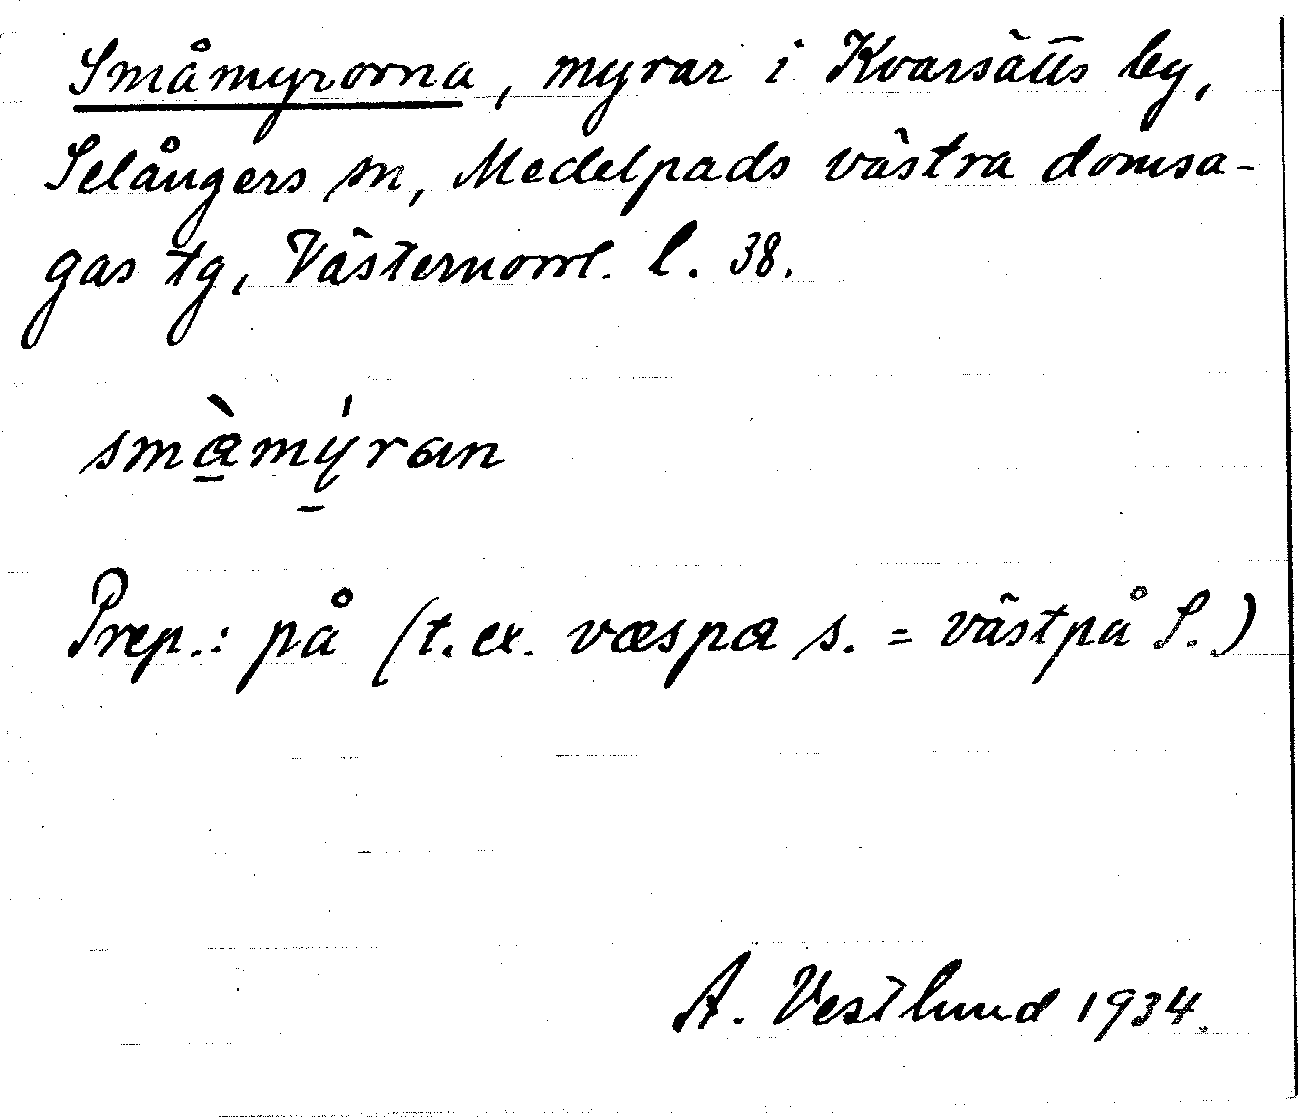 Småmyrorna, myrar i Kvarsätts by,
Selångers sn, Medelpads västra domsa-
gas tg, Västernorrl. l. 38.
smàmýran
Prep.: på (t. ex. væspa s. = västpå S.)
A. Vestlund 1934.